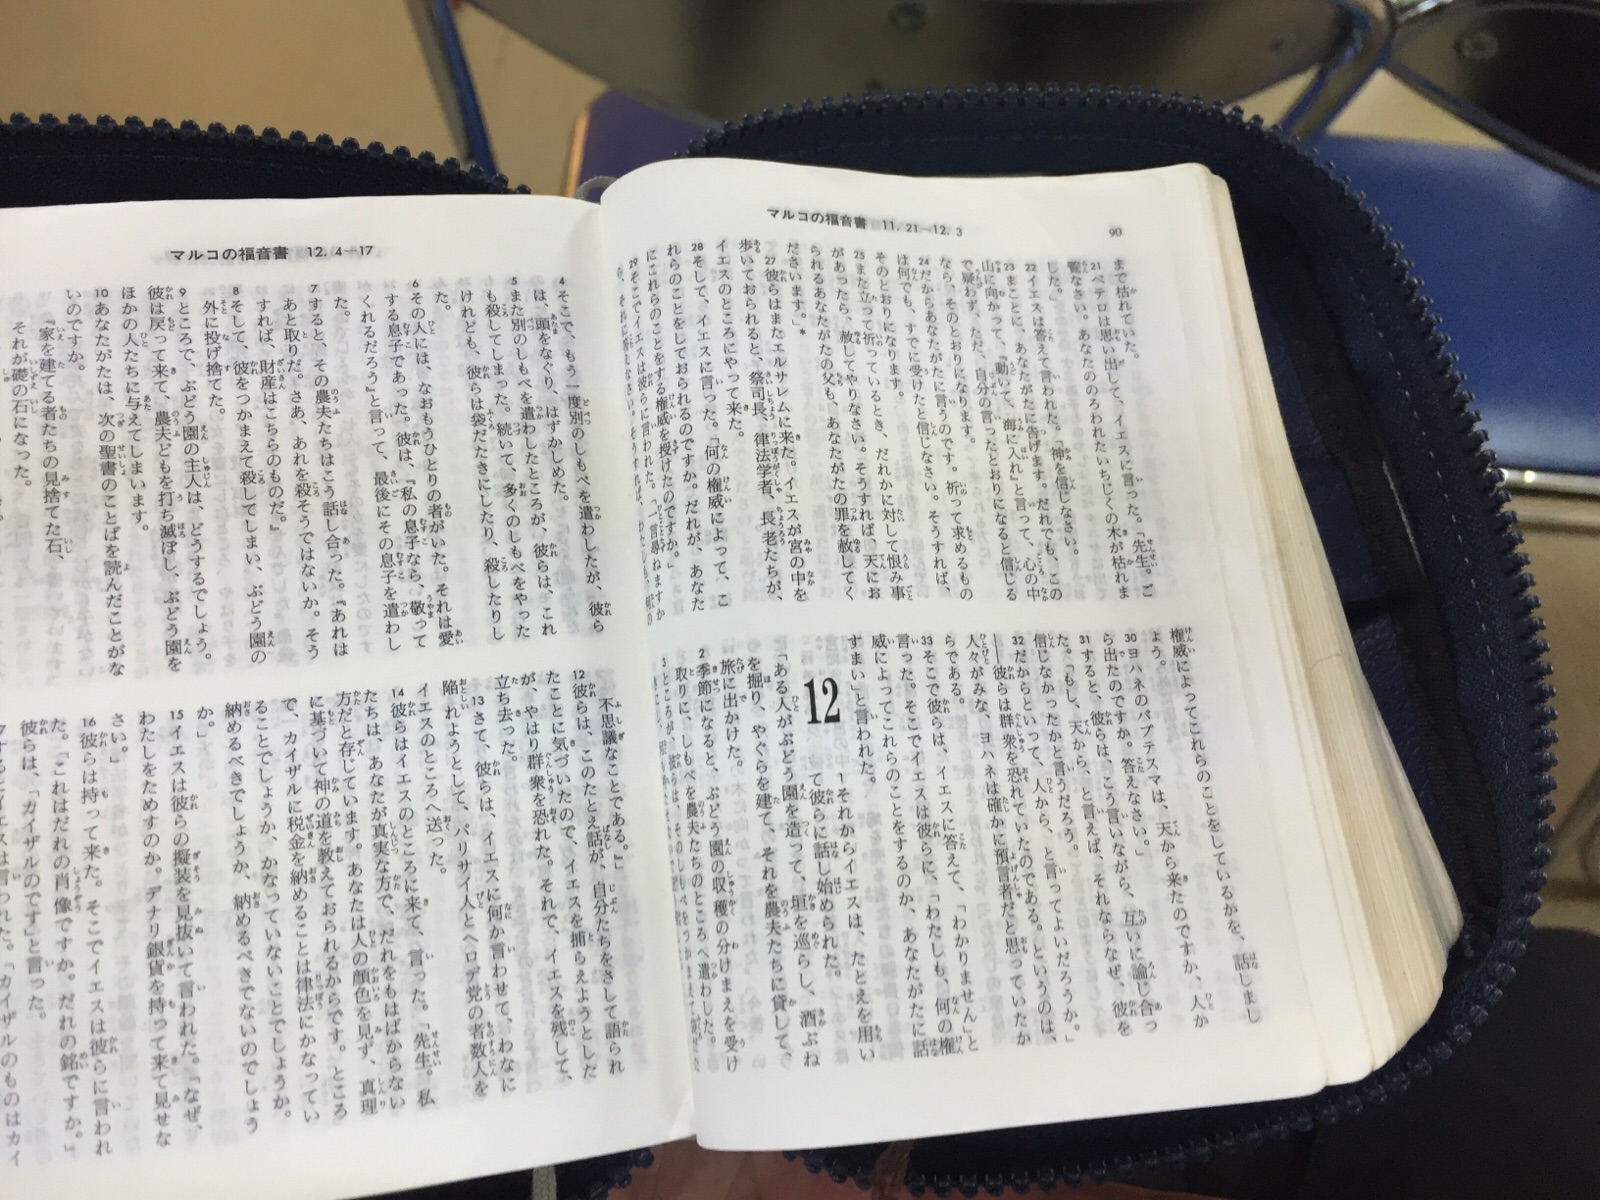 マルコの福音書 11.21—12.3
90
まで枯れていた。
21ペテロは思い出して、イエスに言った。「先生。ご
覧なさい。あなたののろわれたいちじくの木が枯れま
した。」
22イエスは答えて言われた。「神を信じなさい。
23まことに、あなたがたに告げます。だれでも、この
山に向かって、『動いて、海に入れ』と言って、心の中
で疑わず、ただ、自分の言ったとおりになると信じる
なら、そのとおりになります。
24だからあなたがたに言うのです。祈って求めるもの
は何でも、すでに受けたと信じなさい。そうすれば、
そのとおりになります。
25また立って祈っているとき、だれかに対して恨み事
があったら、赦してやりなさい。そうすれば、天にお
られるあなたがたの父も、あなたがたの罪を赦してく
ださいます。」*
27彼らはまたエルサレムに来た。イエスが宮の中を
歩いておられると、祭司長、律法学者、長老たちが、
イエスのところにやって来た。
28そして、イエスに言った。「何の権威によって、こ
れらのことをしておられるのですか。だれが、あなた
にこれらのことをする権威を授けたのですか。」
29そこでイエスは彼らに言われた。「一言尋ねますか
権威によってこれらのことをしているかを、話しまし
ょう。
30ヨハネのバプテスマは、天から来たのですか、人か
ら出たのですか。答えなさい。」
31すると、彼らは、こう言いながら、互いに論じ合っ
た。「もし、天から、と言えば、それならなぜ、彼を
信じなかったかと言うだろう。
32だからといって、人から、と言ってよいだろうか。」
——彼らは群衆を恐れていたのである。というのは、
人々がみな、ヨハネは確かに預言者だと思っていたか
らである。
33そこで彼らは、イエスに答えて、「わかりません」と
言った。そこでイエスは彼らに、「わたしも、何の権
威によってこれらのことをするのか、あなたがたに話
すまい」と言われた。
12
1それからイエスは、たとえを用い
て彼らに話し始められた。
「ある人がぶどう園を造って、垣を巡らし、酒ぶね
を掘り、やぐらを建て、それを農夫たちに貸して、
旅に出かけた。
2季節になると、ぶどう園の収穫の分けまえを受け
取りに、しもべを農夫たちのところへ遣わした。
3ところが、彼らは、そのしもべをつかまえて
マルコの福音書 12.4—17
4そこで、もう一度別のしもべを遣わしたが、彼ら
は、頭をなぐり、はずかしめた。
5また別のしもべを遣わしたところが、彼らは、これ
も殺してしまった。続いて、多くのしもべをやった
けれども、彼らは袋だたきにしたり、殺したりし
た。
6その人には、なおもうひとりの者がいた。それは愛
する息子であった。彼は、『私の息子なら、敬って
くれるだろう』と言って、最後にその息子を遣わし
た。
7すると、その農夫たちはこう話し合った。『あれは
あと取りだ。さあ、あれを殺そうではないか。そう
すれば、財産はこちらのものだ。』
8そして、彼をつかまえて殺してしまい、ぶどう園の
外に投げ捨てた。
9ところで、ぶどう園の主人は、どうするでしょう。
彼は戻って来て、農夫どもを打ち滅ぼし、ぶどう園を
ほかの人たちに与えてしまいます。
10あなたがたは、次の聖書のことばを読んだことがな
いのですか。
『家を建てる者たちの見捨てた石、
それが礎の石になった。
不思議なことである。』」
12彼らは、このたとえ話が、自分たちをさして語られ
たことに気づいたので、イエスを捕らえようとした
が、やはり群衆を恐れた。それで、イエスを残して、
立ち去った。
13さて、彼らは、イエスに何か言わせて、わなに
陥れようとして、パリサイ人とヘロデ党の者数人を
イエスのところへ送った。
14彼らはイエスのところに来て、言った。「先生。私
たちは、あなたが真実な方で、だれをもはばからない
方だと存じています。あなたは人の顔色を見ず、真理
に基づいて神の道を教えておられるからです。ところ
で、カイザルに税金を納めることは律法にかなってい
ることでしょうか、かなっていないことでしょうか。
納めるべきでしょうか、納めるべきでないのでしょう
か。」
15イエスは彼らの擬装を見抜いて言われた。「なぜ、
わたしをためすのか。デナリ銀貨を持って来て見せな
さい。」
16彼らは持って来た。そこでイエスは彼らに言われ
た。「これはだれの肖像ですか。だれの銘ですか。」
彼らは、「カイザルのです」と言った。
イエスは言われた。「カイザルのものはカイ